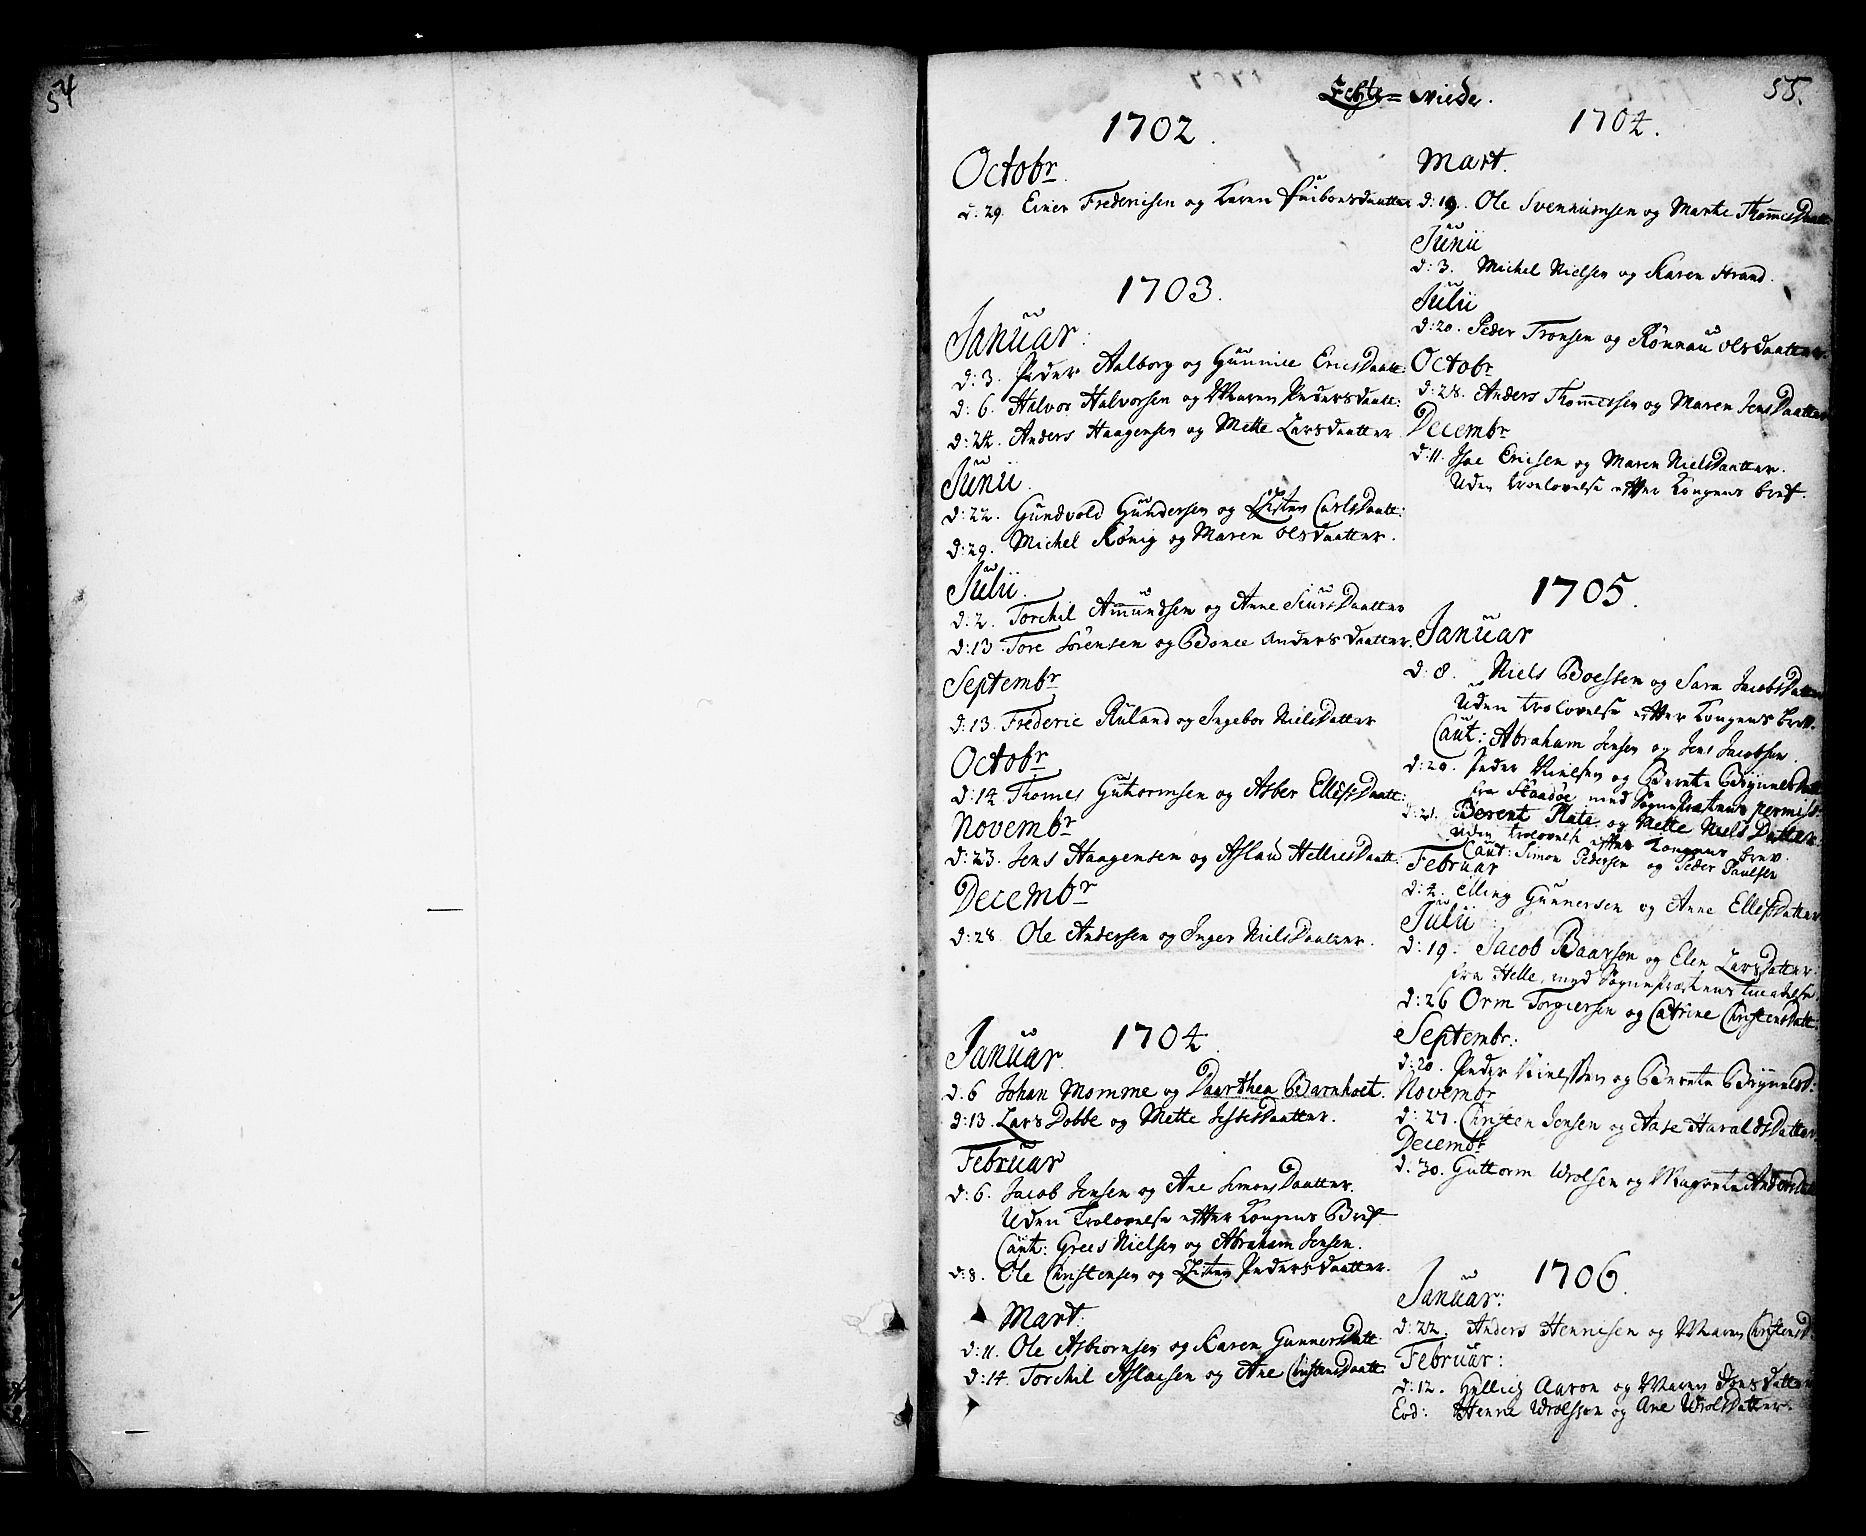 54
55.
Echte=viede.
1702.
Octobr
d. 29. Einer Frederiksen og Karen Saibensdaatter
1703.
Januar:
d: 3. Peder Aalborg og Gunnile EricsDaatt:
d: 6. Halvor Halvorsen og Maren Pedersdaatt:
d: 24. Anders Haagensen og Mette Larsdaatter
Junii.
d: 22. Gundvold Gundersen og Kisten CarlsDaatt:
d: 29. Michel König og Maren Olsdaatter.
Julii.
d: 2. Torchil Amundsen og Anne SiursDaatter
d: 13. Tore Sörensen og Bonee Andersdaatter.
Septembr
d: 13. Frederic Ruland og Ingebor NielsDatter
Octobr
d: 14. Thomes Guttormsen og Asber EllefsDaatt:
Novembr
d: 23. Jens Haagensen og Aslau HelliesDaatt:
Decembr
d: 28. Ole Andersen og Inger NielsDaatter.
1704
Januar
d. 6 Johan Momme og Daarthea Barnhoet.
d: 13. Lars Dobbe og Mette JessesDaatter.
Februar
d: 6. Jacob Jensen og Ane SimonsDaatter.
Uden Trolovelse effter Kongens Bref
Caut: Grees Nielsen og Abraham Jensen.
d: 8. Ole Christensen og Kisten Pedersdaatter.
Mart:
d: 11. Ole Asbiornsen og Karen GunnersDatt:
d: 14. Torchil Aslacsen og Ane ChristensDaatt:
1704.
Mart.
d: 19. Ole Svennumsen og Marte ThomesDaatt
Junii
d: 3. Michel Nielsen og Karen Strand.
Julii
d: 20. Peder Tronsen og Rönnau Olsdaatter.
Octobr
d: 28. Anders Thomessen og Maren JensDaatter
Decembr
d: 11. Isac Ericsen og Maren NielsDaatter.
Uden troelovelse effter Kongens bref.
1705.
Januar
d: 8. Niels Boessen og Sara JacobsDatter
Uden trolovelse effter Kongens brev.
Caut: Abraham Jensen og Jens Jacobsen.
d: 20. Peder Nielsen og Berete BrynnelsDatt
fra Skaadöe med Sognepræstens permiss:
d: 21. Berent Plate og Mette NielsDatter
uden trolovelse effter Kongens brev.
Caut: Simon Pedersen og Peder Paulsen
Februar
d: 4. Elling Gunnersen og Anne EllefsDatter
Julii
d: 19. Jacob Baarsen og Elen LarsDatter:
fra Helle, med Sognepræstens tilladelse
d: 26 Orm Torgiersen og Catrine ChristensDatt:
Septembr:
d: 20. Peder Nielssen og Berete Brynnelsd:
Novembr
d: 27. Christen Jensen og Aase HaraldsDatter
Decembr
d: 30. Guttorm Wrolsen og Magrete AndersDatt
1706.
Januar:
d: 22. Anders Hennisen og Maren ChristensD:
Februar:
d: 12. Hellich Aaron og Maren Jonsdatter
Eod: Henne Wrolssen og Ane WrolsDatter.